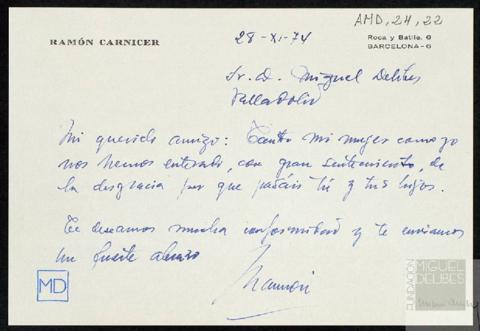 AMD, 24, 22
RAMÓN CARNICER
28-XI-74
Roca y Batlle, 6
BARCELONA-6
Sr. D. Miguel Delibes
Valladolid
Mi querido amigo: Tanto mi mujer como yo
nos hemos enterado, con gran sentimiento, de
la desgracia por que pasáis tú y tus hijos.
Te deseamos mucha conformidad y te enviamos
un fuerte abrazo
Ramón
MD
FUNDACIÓN
MIGUEL
DELIBES